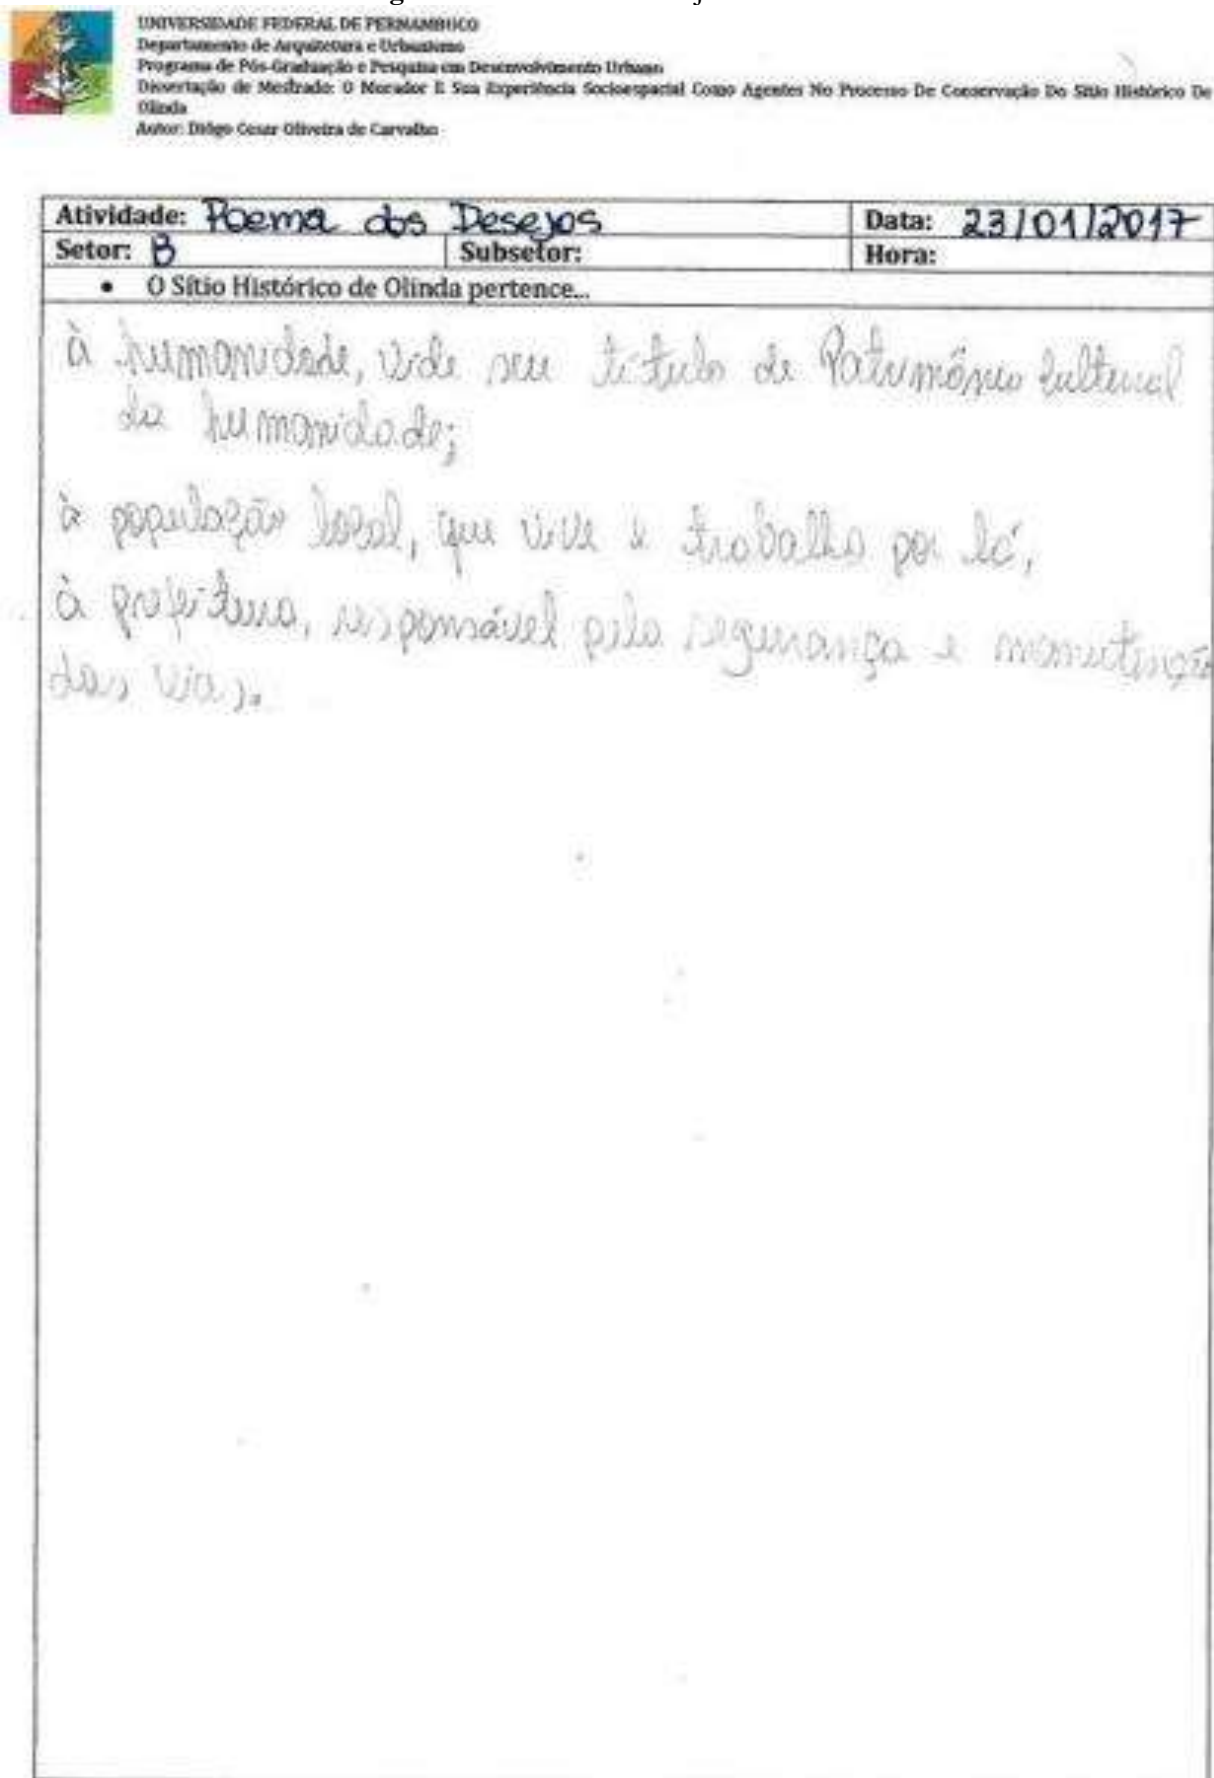 UNIVERSIDADE FEDERAL DE PERNAMBUCO
Departamento de Arquitetura e Urbanismo
Programa de Pós-Graduação e Pesquisa em Desenvolvimento Urbano
Dissertação de Mestrado: O Morador E Sua Experiência Socioespacial Como Agentes No Processo De Conservação Do Sítio Histórico De
Olinda
Autor: Diôgo Cesar Oliveira de Carvalho
Atividade: Poema dos Desejos Data: 23/01/2017
Setor: B Subsetor: Hora:
• O Sítio Histórico de Olinda pertence...
à humanidade, vide seu título de Patrimônio Cultural
da humanidade;
à população local, que vive e trabalha por lá,
à prefeitura, responsável pela segurança e manutenção
das vias.